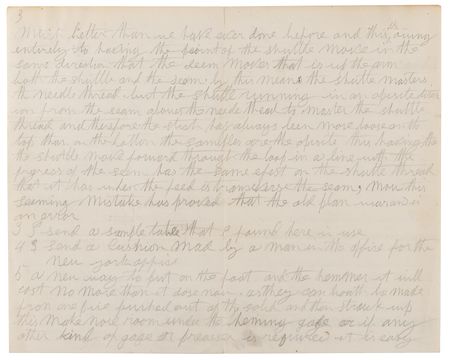 3
Much better than we have ever done before and this is owing
entirely to having the point of the shuttle move in the
same direction that the seam moves that is up the arm
both the shuttle and the seam by this means the shuttle masters
the needle thread but the shuttle running in an oposite direct
ion from the seam allows the needle thread to master the shuttle
thread and therefore the stich has always been more loose on the
top than on the bottom the samples are the oposite this having the
the shuttle move forward through the loop in a line with the
progress of the seam has the same efect on the shuttle thread
that it has when the feed is transverse the seam, Now this
seeming mistake has proved that the old plan was
an error
3 I send a sample table that I found here in use
4 I send a Cushion Mad by a man in the office for the
New york office
5 a new way to put on the foot and the hemmer it will
cost no more than it dose now as they can both be made
from one pice punched out of the and then struck up
this make more room under the heming gage or if any
other kind of gage or presser is required it is easy